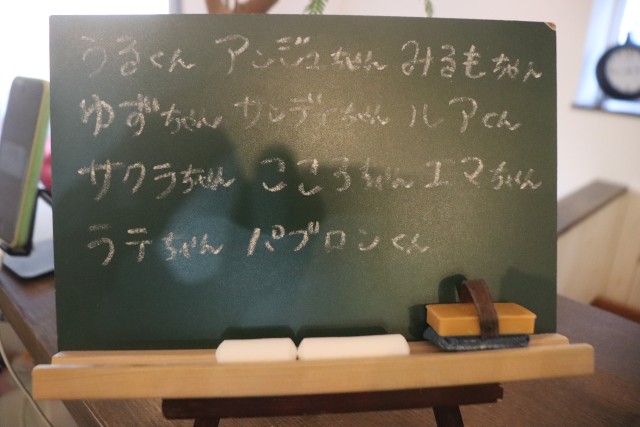 うるくん アンジュちゃん みるもちゃん
ゆずちゃん サンディちゃん ルアくん
サクラちゃん こころちゃん エマちゃん
ラテちゃん パブロンくん